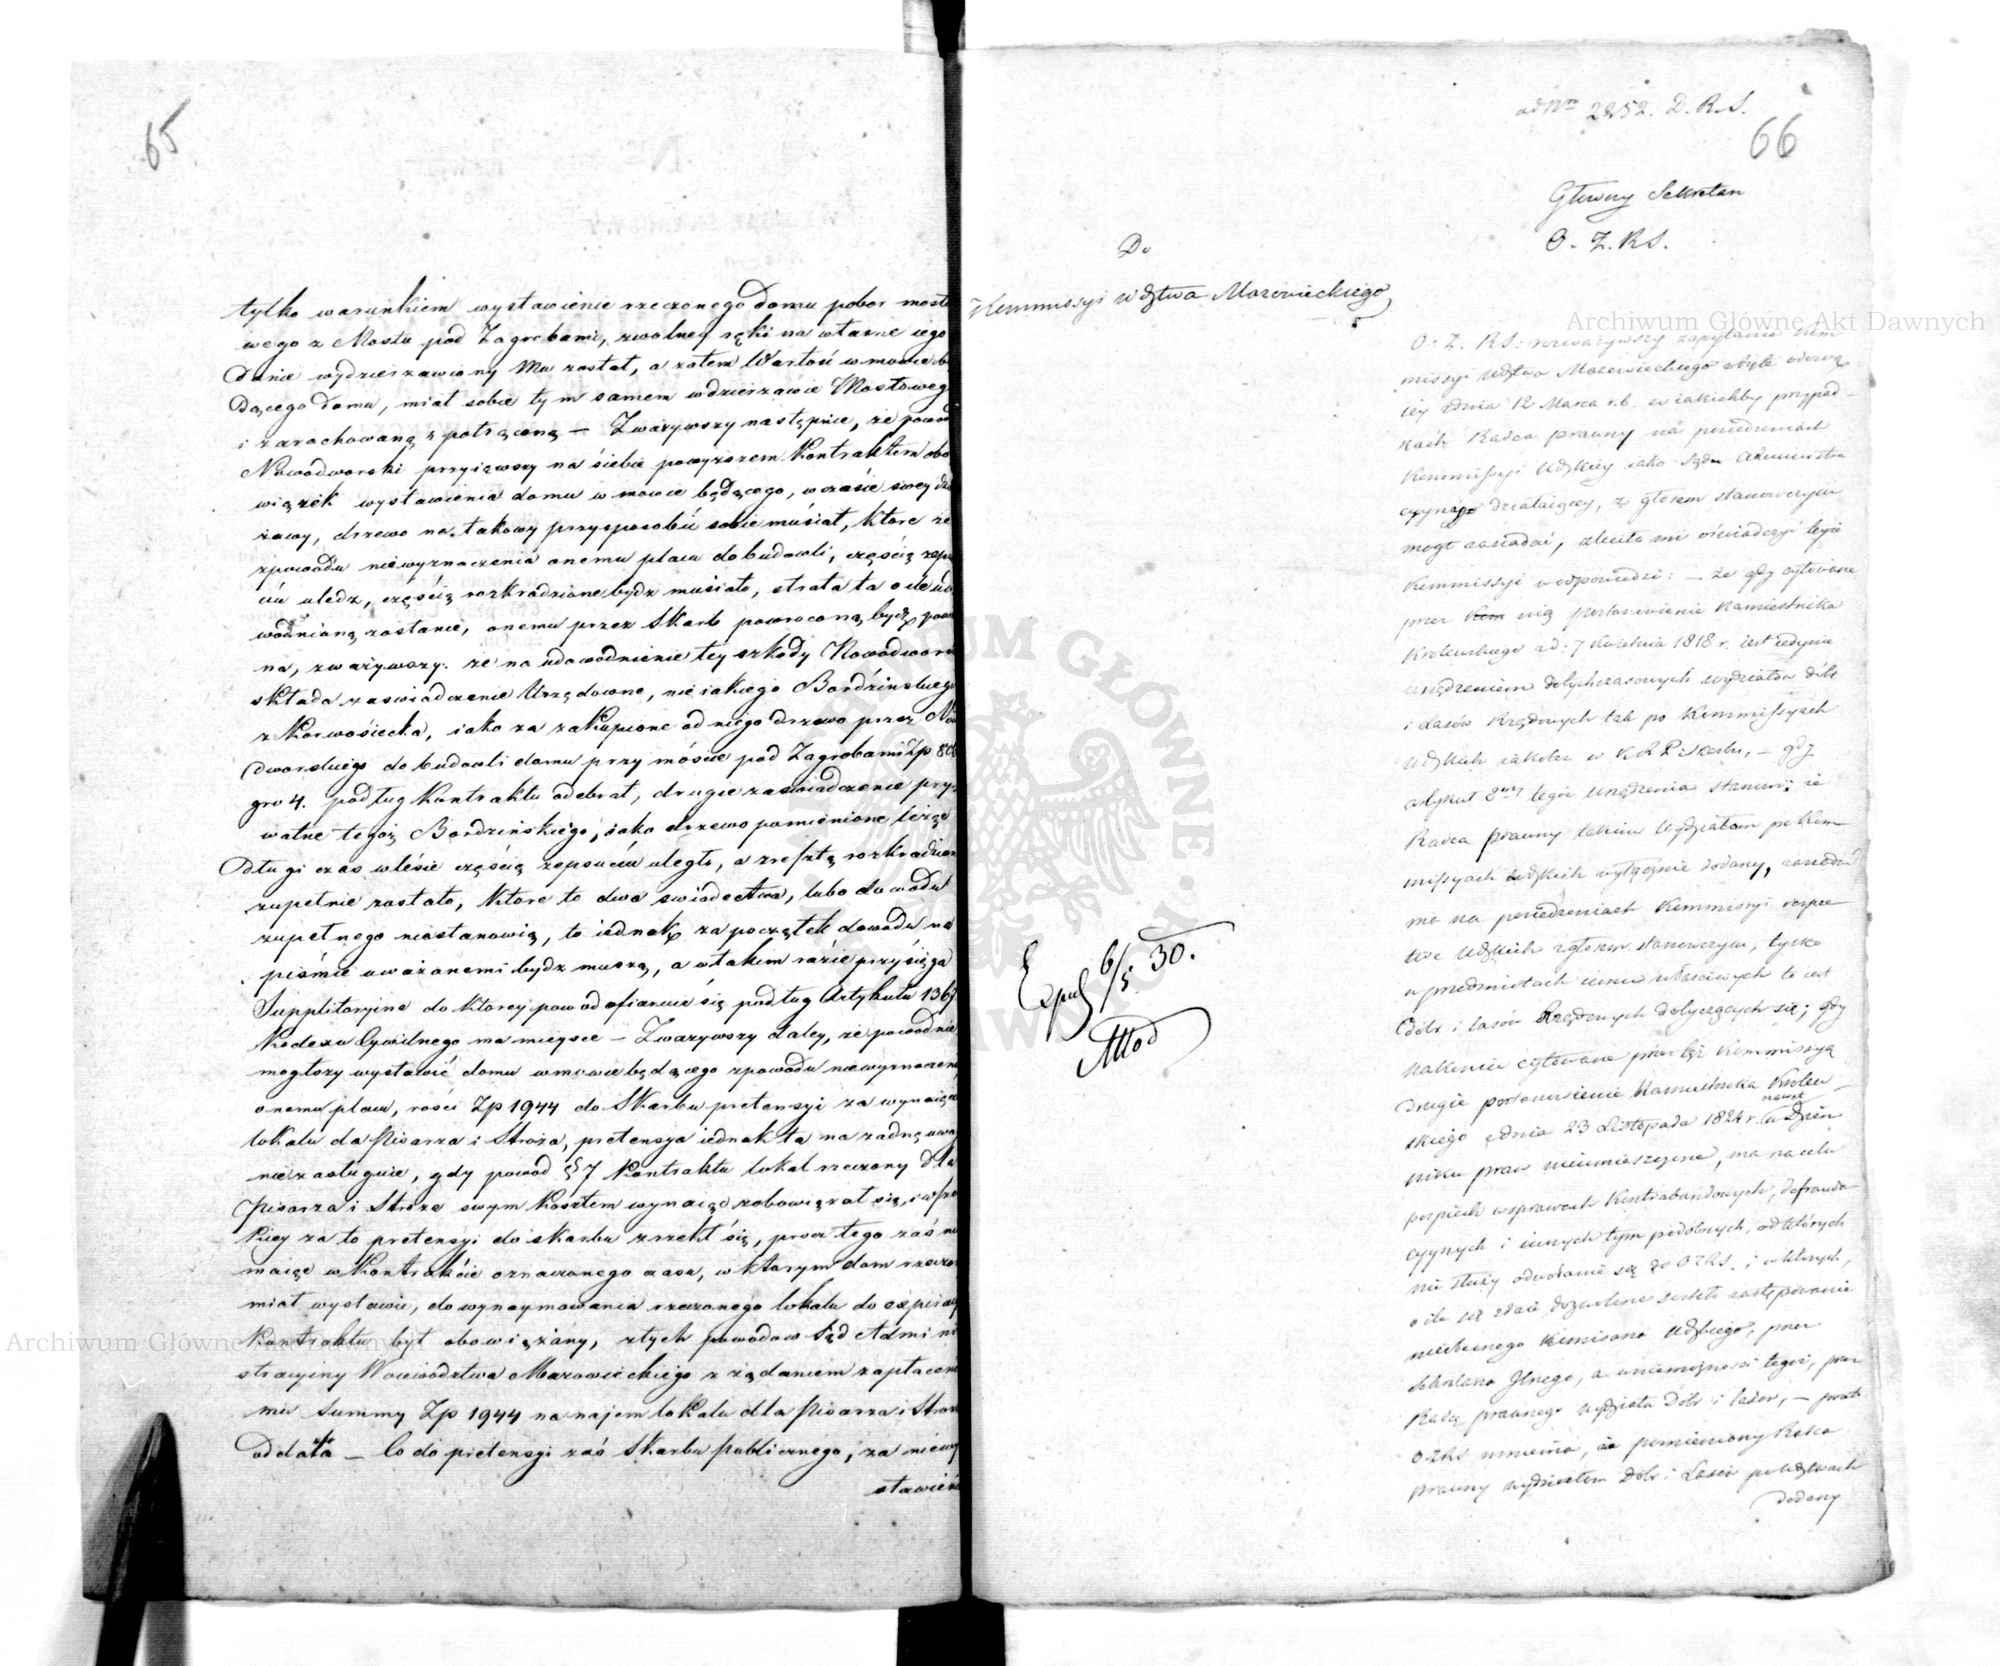 65
tylko warunkiem wystawienia rzeczonego domu pobor mosto
wego z Mostu pod Zagrobami, zwolney ręki na własne iego
Danie wydzierzawiony Mu został, a zatem Wartość w mowie bę
Dącego domu, miał sobie tym samem w dzierzawie Mostoweg
i zarachowaną i potrąconą — Zwazywszy następnie, że powod
Nowodworski przyiąwszy na siebie powyzszem Kontraktem obo
wiązek wystawienia domu w mowie będącego, w czasie swey dzi
żawy, drzewo na takowy przysposobić sobie musiał, ktore ze
zpowodu niewyznaczenia onemu placu do budowli, częścią zepsu
ciu uledz, częścią rozkradzione bydz musiało, strata ta o ile udo
wodnioną zostanie, onemu przez Skarb powroconą bydź powin
na, zwazywszy: że na udowodnienie tey szkody Nowodwors
składa zaswiadczenie Urzędowne, nieiakiego Bordzinskiego
z Karwosiecka, iako za zakupione od niego drzewo przez No
Dworskiego do budowli domu przy moście pod Zagrobami Zp 80
gro 4. podług Kontraktu odebrał, drugie zaswiadczenie pry
watne tegoż Bordzińskiego, iako drzewo pomienione leżąc
Długi czas w lesie częścią zepsuciu uległo, a zresztą rozkradzion
zupełnie zostało, Ktore to dwa swiadectwa, lubo dowodu
zupełnego niestanowią, to iednak za początek dowodu na
piśmie uważanemi bydz muszą, a w takim razie przysięga
Supplitoryina do ktorey powod ofiaruie się podług Artykułu 1367
Kodexu Cywilnego ma mieysce — Zwazywszy daley, że powod nie
mogłszy wystawić domu w mowie będącego zpowodu niewyznaczeni
onemu placu, rości Zp 1944 do Skarbu pretensyi za wynaięci
lokalu dla Pisarza i Stroża, pretensya iednak ta na żadną uwa
nie zasługuie, gdy powod §7 Kontraktu lokal rzeczony dla
Pisarza i Stroża swym Kosztem wynaiąc zobowiązał się, i wsze
kiey za to pretensyi do skarbu zrzekł się, procz tego zaś nie
maiąc w Kontrakcie oznaczonego czasu, w ktorym dom rzeczon
miał wystawić, do wynaymowania rzeczonego lokalu do expiracy
Kontraktu był obowiązany, z tych powodow Sąd Admini
stracyiny Woiewodztwa Mazowieckiego z rządaniem zapłaceni
mu Summy Zp 1944 na najem lokalu dla Pisarza i Stroż
oddala — Co do pretensyi zaś Skarbu Publicznego, za niewy
stawieni
ad Nro 2252. D. R. S.
66
Główny Sekretarz
O. Z. R S.
Do
Kommissyi Wdztwa Mazowieckiego
O. Z. RS: rozważywszy zapytanie Kom
missyi Wdztwa Mazowieckiego
zdnia 12 Marca r.b. w iakichby przypad-
kach Radca prawny na posiedzeniach
Kommissyi Wdzkiey iako Sądu Administra
cyynego działaiącey, z głosem stanowczym
mogł zasiadać, zleciła mi oświadczyć teyże
Kommissyi w odpowiedzi: — że gdy cytowane
przez nią postanowienie Namiestnika
Krolewskiego z d: 7 Kwietnia 1818 r. iest iedynie
urządzeniem dotychczasowych wydziałow dobr
i Lasow Rządowych tak po Kommissyach
Wdzkich iakoteż w K R P. Skarbu, — gdy
artykuł 8my tegoż urządzenia stanowi: że
Radca prawny takim Wydziałom po Kom
missyach Wdzkich wyłącznie dodany, zasiadać
ma na posiedzeniach Kommissyi
Wdzkich z głosem stanowczym, tylko
w przedmiotach iemu właściwych to iest
dobr i lasow Rządowych dotyczących się; gdy
nakoniec cytowane przez tęż Kommissyą
drugie postanowienie Namiestnika Krolew-
skiego zdnia 23 Listopada 1824 r. nawet w Dzien
niku praw nieumieszczone, ma na celu
pospiech w sprawach Kontrabandowych, defrauda
cyynych i innych tym podobnych, od ktorych
nie służy odwołanie się do OZRS. i w ktorych,
o ile się zdaie dozwolone zostało zastępowanie
nieobecnego Kommisarza Wdzkiego, przez
Sekretarza Jlnego, a w niemożności tegoż, przez
Radcę prawnego wydziału Dobr i lasow, — przeto
OZRS mniema, że pomieniony Radca
prawny wydziałom Dobr i Lasow po Wdztwach
dodany
Exped 6/5 30.